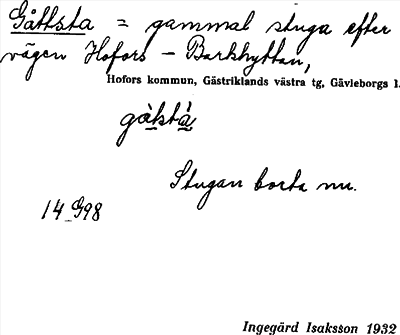 Gåttsta = gammal stuga efter
vägen Hofors – Barkhyttan,
Hofors kommun, Gästriklands västra tg, Gävleborgs l.
gå̀kstà̱
Stugan borta nu.
14 G98
Ingegärd Isaksson 1932